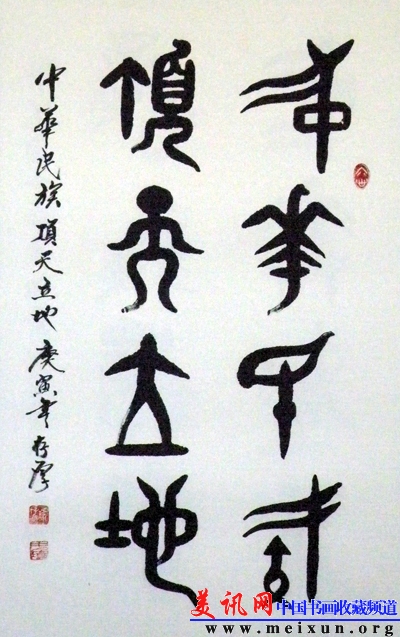 中華民族
頂天立地
中華民族頂天立地 庚寅年存厚
美讯网中国书画收藏频道
www.meixun.org